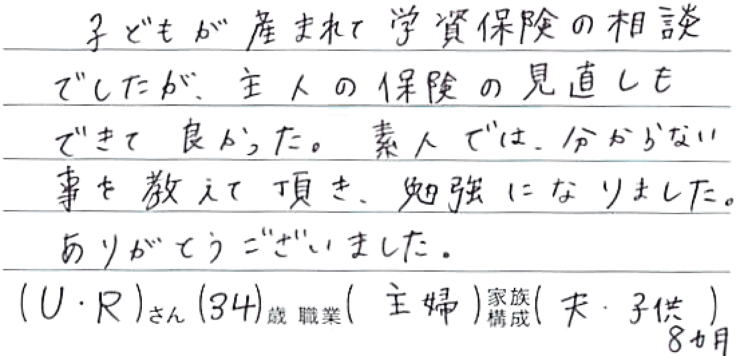 子どもが産まれて学資保険の相談
でしたが、主人の保険の見直しも
できて良かった。素人では、分からない
事を教えて頂き、勉強になりました。
ありがとうございました。
(U・R)さん(34)歳 職業(主婦)家族構成(夫・子供)
8ヵ月